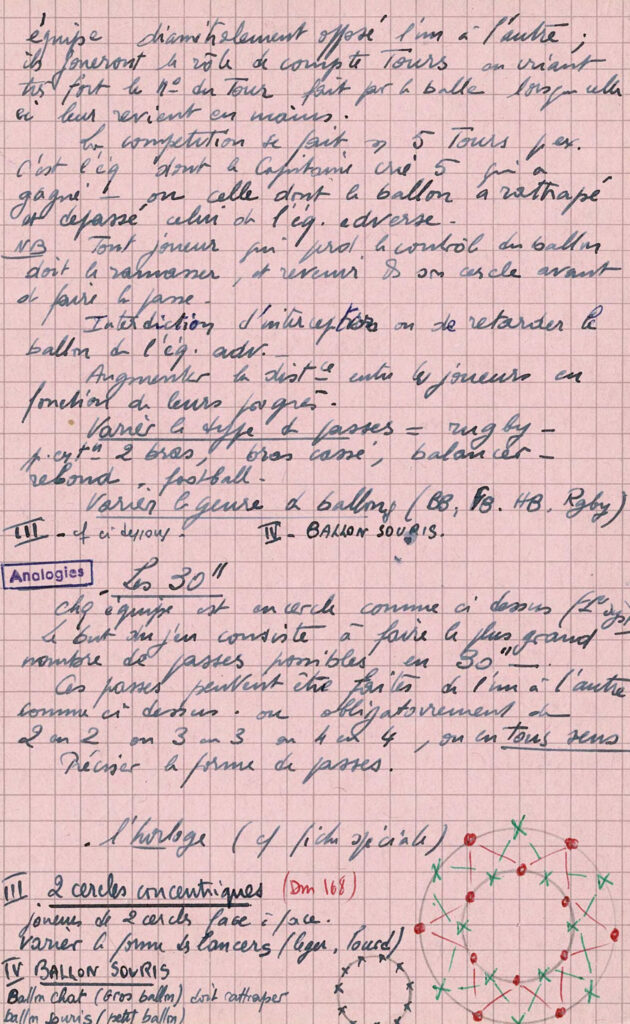 équipe diamétralement opposé l'un à l'autre ;
ils joueront le rôle de compte Tours en criant
très fort le n° du Tour fait par la balle lorsque celle
ci leur revient en mains.
La competition se fait en 5 Tours p.ex.
c'est l'éq dont le Capitaine crie 5 qui a
gagné – ou celle dont le ballon a rattrapé
et dépassé celui de l'éq. adverse.
NB Tout joueur qui perd le contrôle du ballon
doit le ramasser, et revenir ds son cercle avant
de faire la passe.
Interdiction d'interception ou de retarder le
ballon de l'éq. adv. –
Augmenter la dist ce entre les joueurs en
fonction de leurs progrès.
Varier le type de passes = rugby –
2 bras, bras cassé, balancer –
rebond . football.
Varier le genre de ballons (BB, FB. HB. Rgby)
III - cf ci dessous. IV - BALLON SOURIS.
Analogies
Les 30"
chq équipe est en cercle comme ci dessus
Le but du jeu consiste à faire le plus grand
nombre de passes possibles en 30" –.
Ces passes peuvent être faites de l'un à l'autre
comme ci dessus . ou obligatoirement de
2 en 2 ou 3 en 3 ou 4 en 4 , ou en tous sens
Préciser la forme de passes.
. l'horloge (cf fiche spéciale)
III 2 cercles concentriques (Dm 168)
joueurs de 2 cercles face à face.
Varier la forme des lancers (leger, lourd)
IV BALLON SOURIS
Ballon chat (Gros ballon) doit rattraper
ballon souris (petit ballon)